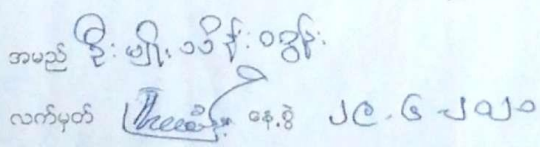 အမည် ဦး မျိုး သိန်း ဝင်း
လက်မှတ် နေ့စွဲ ၂၉.၆.၂၀၂၁